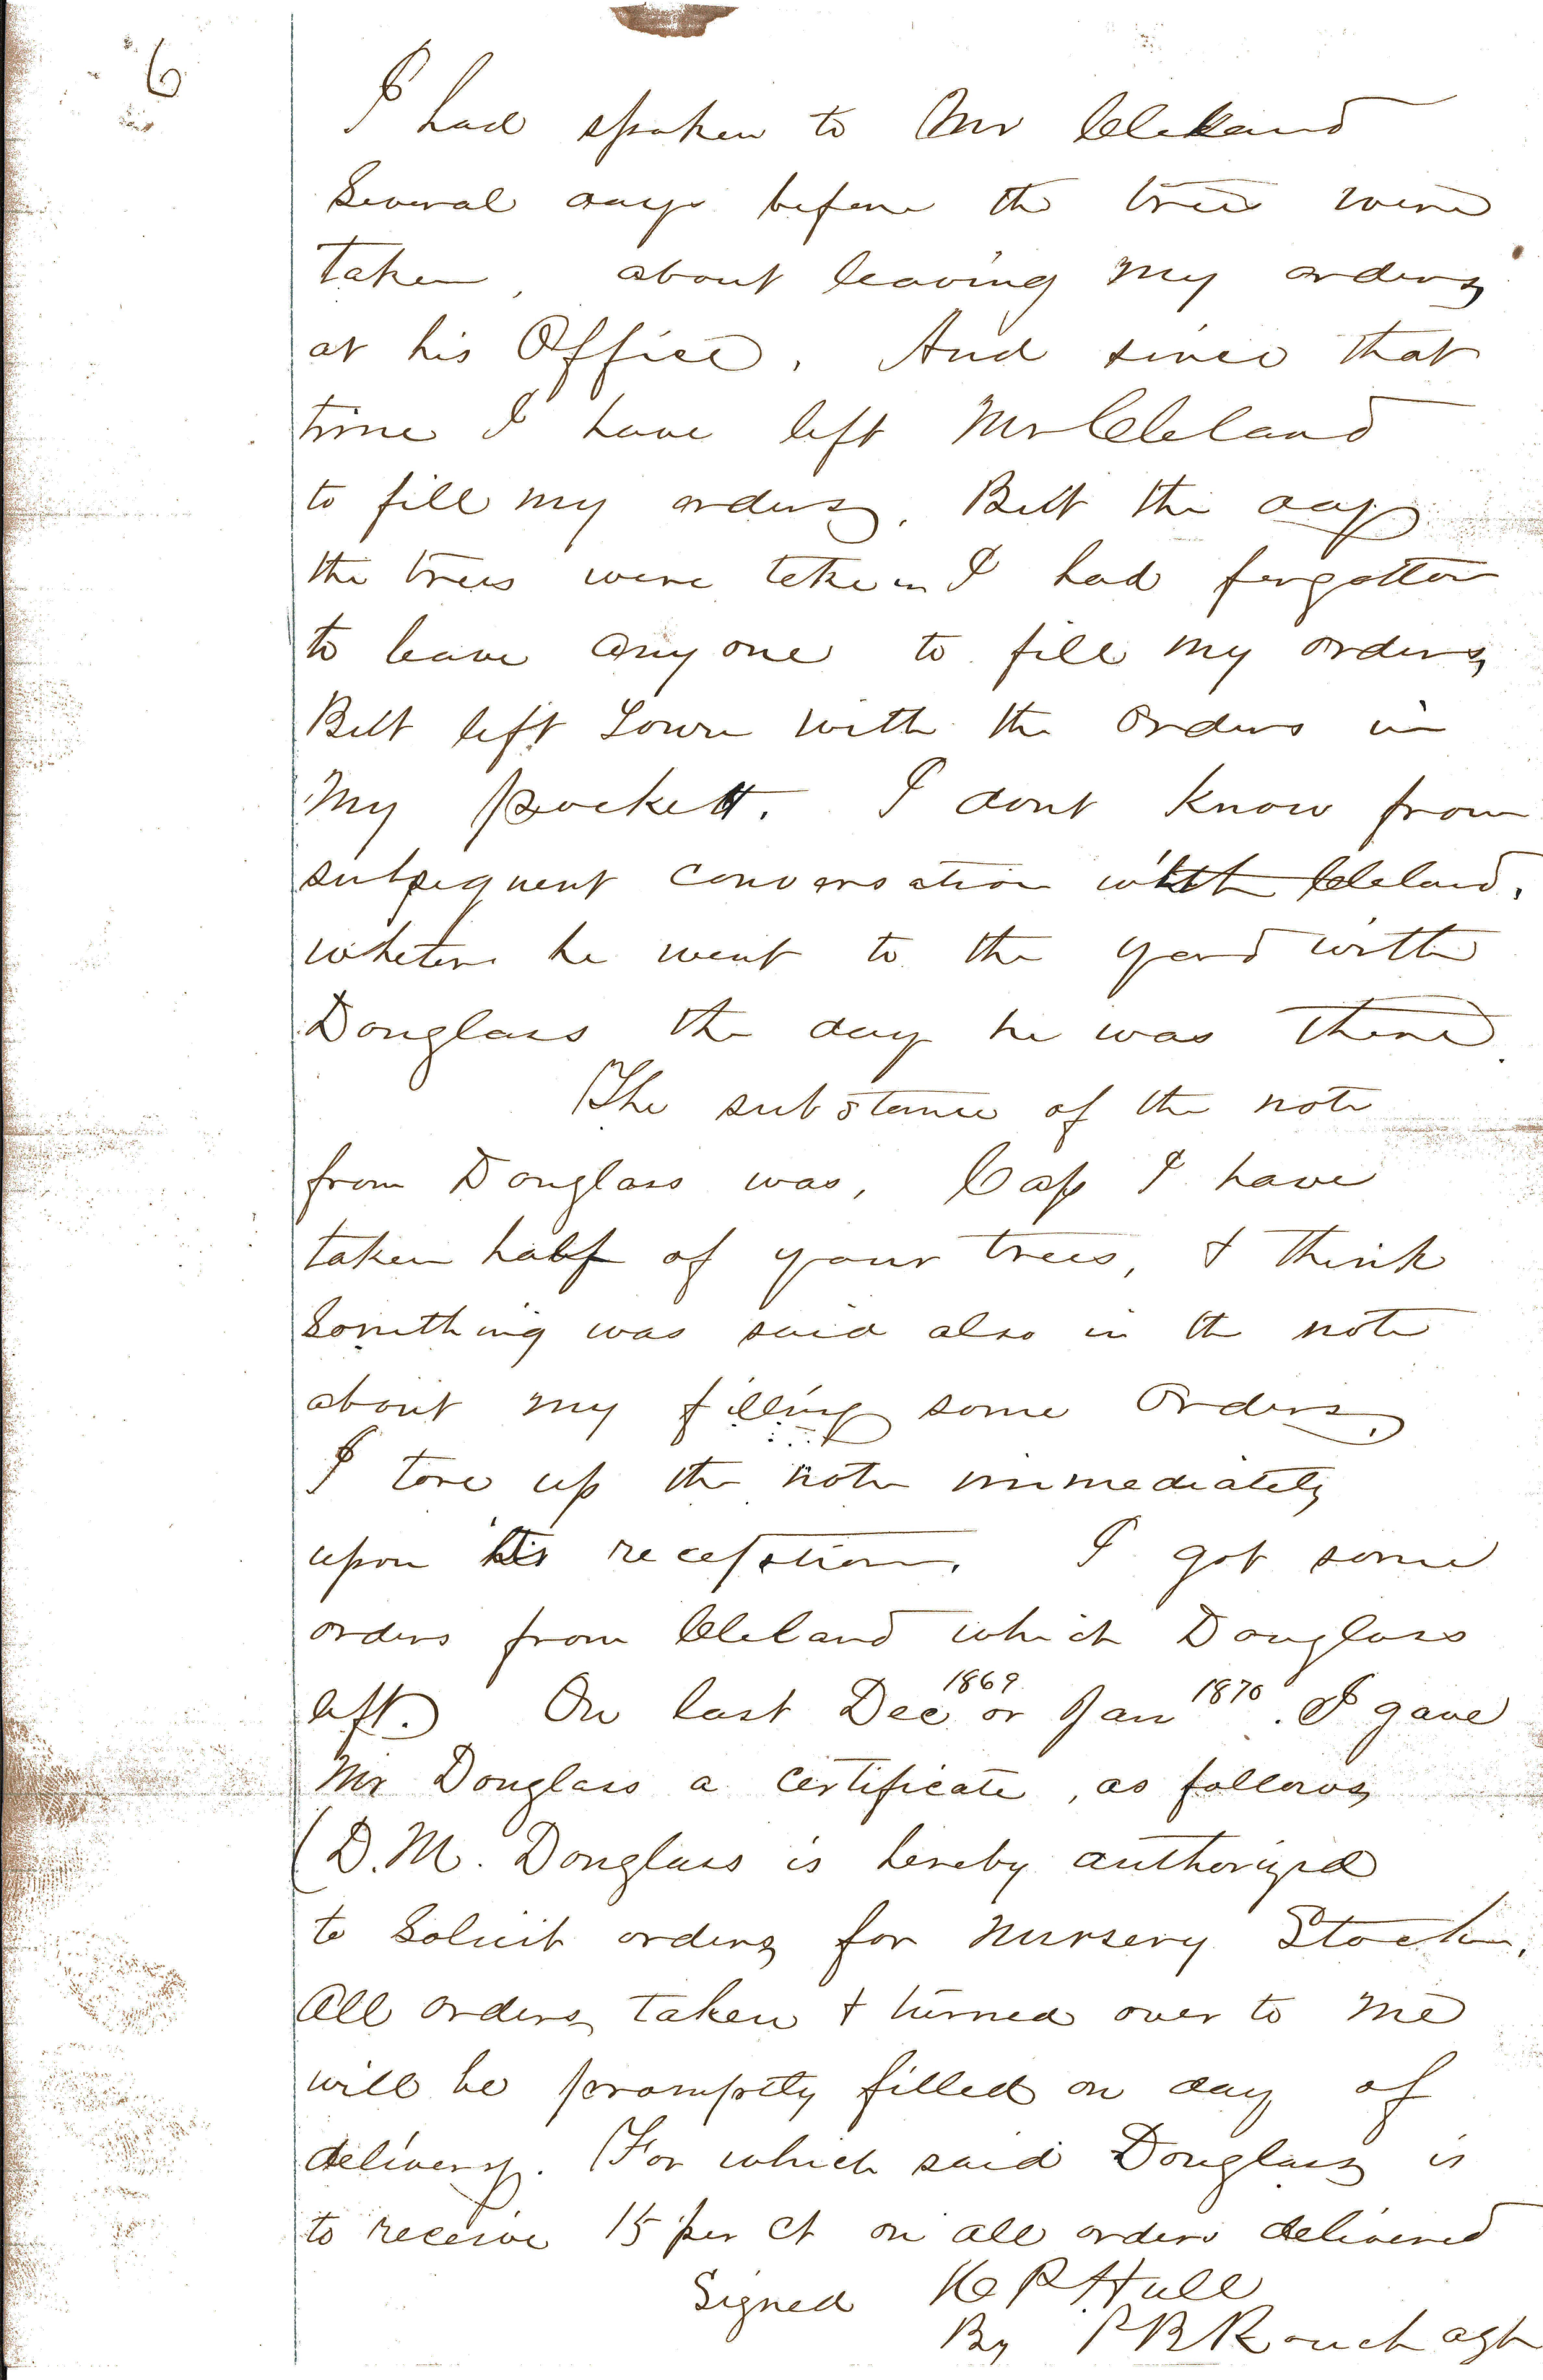 6
I had spoken to Mr Cleland
Several days before the trees were
taken, about leaving my orders
at his Office. And since that
time I have left Mr Cleland
to fill my orders. But the day
the trees were taken I had forgotten
to leave any one to fill my orders,
But left Town with the orders in
my pockett. I dont know from
subsequent conversation with Cleland,
wheter he went to the yard with
Douglass the day he was there.
The substance of the note
from Douglass was, Cap I have
taken half of your trees, & think
Something was said also in the note
about my filling some orders.
I tore up the note immediately
upon its reception. I got some
orders from Cleland which Douglass
left. On last Dec 1869 or Jan 1870. I gave
Mr Douglass a certificate, as follows
(D. M. Douglass is hereby authorized
to Solicit orders for nursery Stock.
All orders taken & turned over to me
will be promptly filled on day of
delivery. For which said Douglass is
to receive 15 per ct on all orders delivered
Signed P Hull
By P B Rouch agt